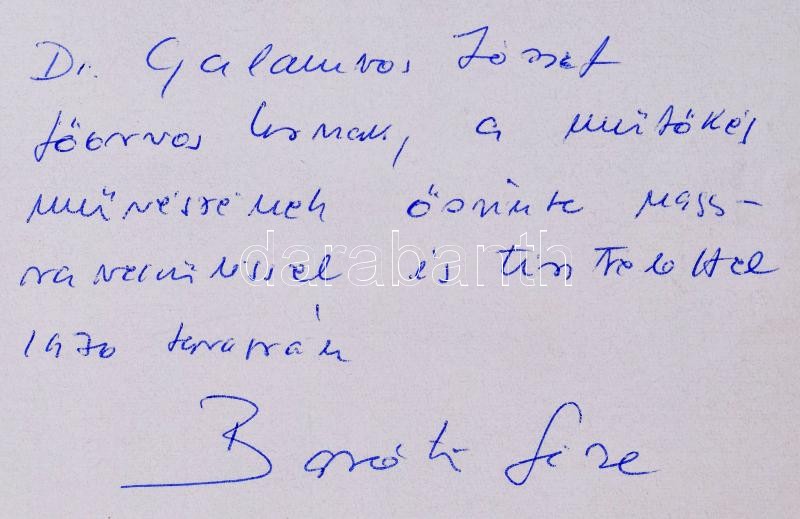 Dr. Galambos József
főorvos Úrnak, a műtőkés
művészének őszinte nagy-
rabecsüléssel és tisztelettel
1970 tavaszán
Baróti Géza
darabanth